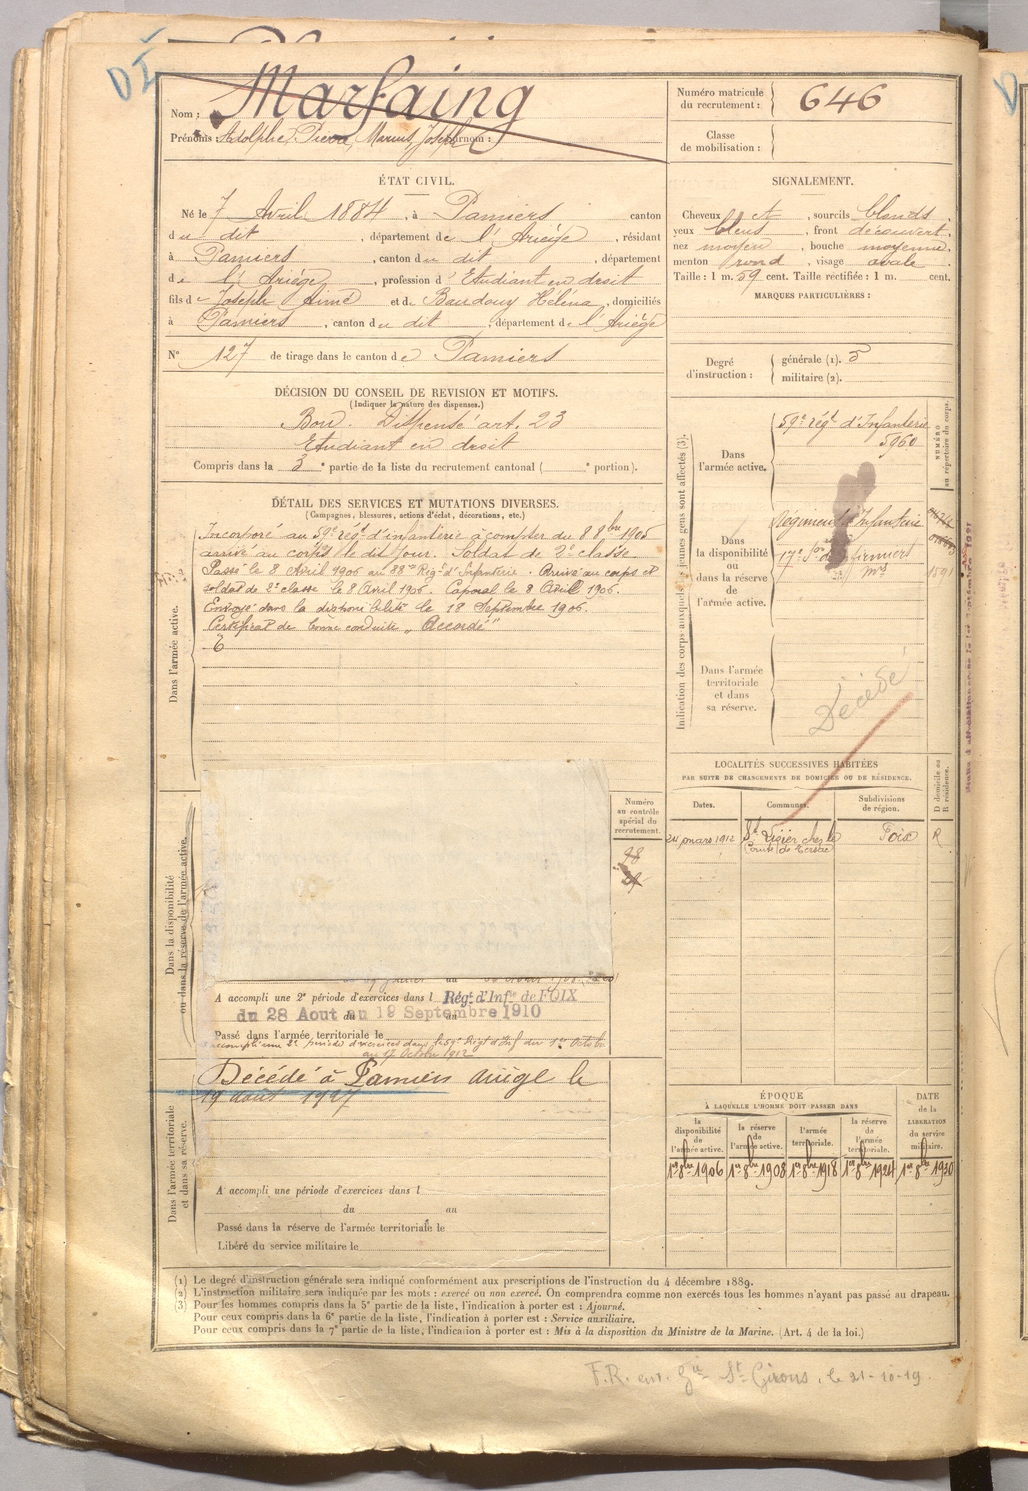 DI
Nom : Marfaing
Prénoms : Adolphe, Pierre, Marius, Joseph
Numéro matricule du recrutement : 646
Classe de mobilisation :
ÉTAT CIVIL.
Né le 7 Avril 1884, à Pamiers canton
du dit, département de l'Ariège, résidant
à Pamiers, canton du dit, département
de l'Ariège, profession d'Etudiant en droit
fils de Joseph Aimé et de Baudouy Héléna, domiciliés
à Pamiers, canton du dit, département de l'Ariège
SIGNALEMENT.
Cheveux et, sourcils blonds
yeux bleus, front découvert,
nez moyen, bouche moyenne,
menton rond, visage ovale
Taille : 1 m. 59 cent. Taille rectifiée : 1 m. cent.
MARQUES PARTICULIÈRES :
N° 127 de tirage dans le canton de Pamiers
Degré d'instruction : générale (1). 3
militaire (2).
DÉCISION DU CONSEIL DE REVISION ET MOTIFS.
(Indiquer la nature des dispenses.)
Bon. Dispensé art. 23
Etudiant en droit
Compris dans la 3e partie de la liste du recrutement cantonal ( e portion).
DÉTAIL DES SERVICES ET MUTATIONS DIVERSES.
(Campagnes, blessures, actions d'éclat, décorations, etc.)
Dans l'armée active.
Incorporé au 59e régt d'infanterie à compter du 8 8bre 1905
arrivé au corps le dit jour. Soldat de 2e classe.
Passé le 8 Avril 1906 au 88me Régt d'Infanterie. Arrivé au corps et
soldat de 2e classe le 8 Avril 1906. Caporal le 8 Avril 1906.
Envoyé dans la disponibilité le 18 Septembre 1906.
Certificat de bonne conduite "Accordé"
Indication des corps auxquels les jeunes gens sont affectés (3).
Dans l'armée active.
59e régt d'Infanterie
5960
NUMÉRO au répertoire du corps.
Dans la disponibilité ou dans la réserve de l'armée active.
Régiment d'Infanterie
17e Son
1591
Dans l'armée territoriale et dans sa réserve.
Décédé
LOCALITÉS SUCCESSIVES HABITÉES
PAR SUITE DE CHANGEMENTS DE DOMICILE OU DE RÉSIDENCE.
Dates. Communes. Subdivisions de région. D domicile ou R résidence.
24 mars 1912 St Lizier chez le Comte de Tersac Foix R
Dans la disponibilité ou dans la réserve de l'armée active.
Numéro au contrôle spécial du recrutement.
98
A accompli une 2e période d'exercices dans l Régt d'Infie de FOIX
du 28 Aout au 19 Septembre 1910
Passé dans l'armée territoriale le
accompli une 2e période d'exercices dans le 59e Régt d'Inf du 1er Octobre
au 17 Octobre 1912
Dans l'armée territoriale et dans sa réserve.
Décédé à Pamiers ariège le
19 août 1927
A accompli une période d'exercices dans l
du au
Passé dans la réserve de l'armée territoriale le
Libéré du service militaire le
ÉPOQUE
À LAQUELLE L'HOMME DOIT PASSER DANS
la disponibilité de l'armée active.
la réserve de l'armée active.
l'armée territoriale.
la réserve de l'armée territoriale.
DATE de la LIBÉRATION du service militaire.
1er 8bre 1906 1er 8bre 1908 1er 8bre 1918 1er 8bre 1924 1er 8bre 1930
(1) Le degré d'instruction générale sera indiqué conformément aux prescriptions de l'instruction du 4 décembre 1889.
(2) L'instruction militaire sera indiquée par les mots : exercé ou non exercé. On comprendra comme non exercés tous les hommes n'ayant pas passé au drapeau.
(3) Pour les hommes compris dans la 5e partie de la liste, l'indication à porter est : Ajourné.
Pour ceux compris dans la 6e partie de la liste, l'indication à porter est : Service auxiliaire.
Pour ceux compris dans la 7e partie de la liste, l'indication à porter est : Mis à la disposition du Ministre de la Marine. (Art. 4 de la loi.)
F.R. env. Gie St Girons, le 21-10-19.